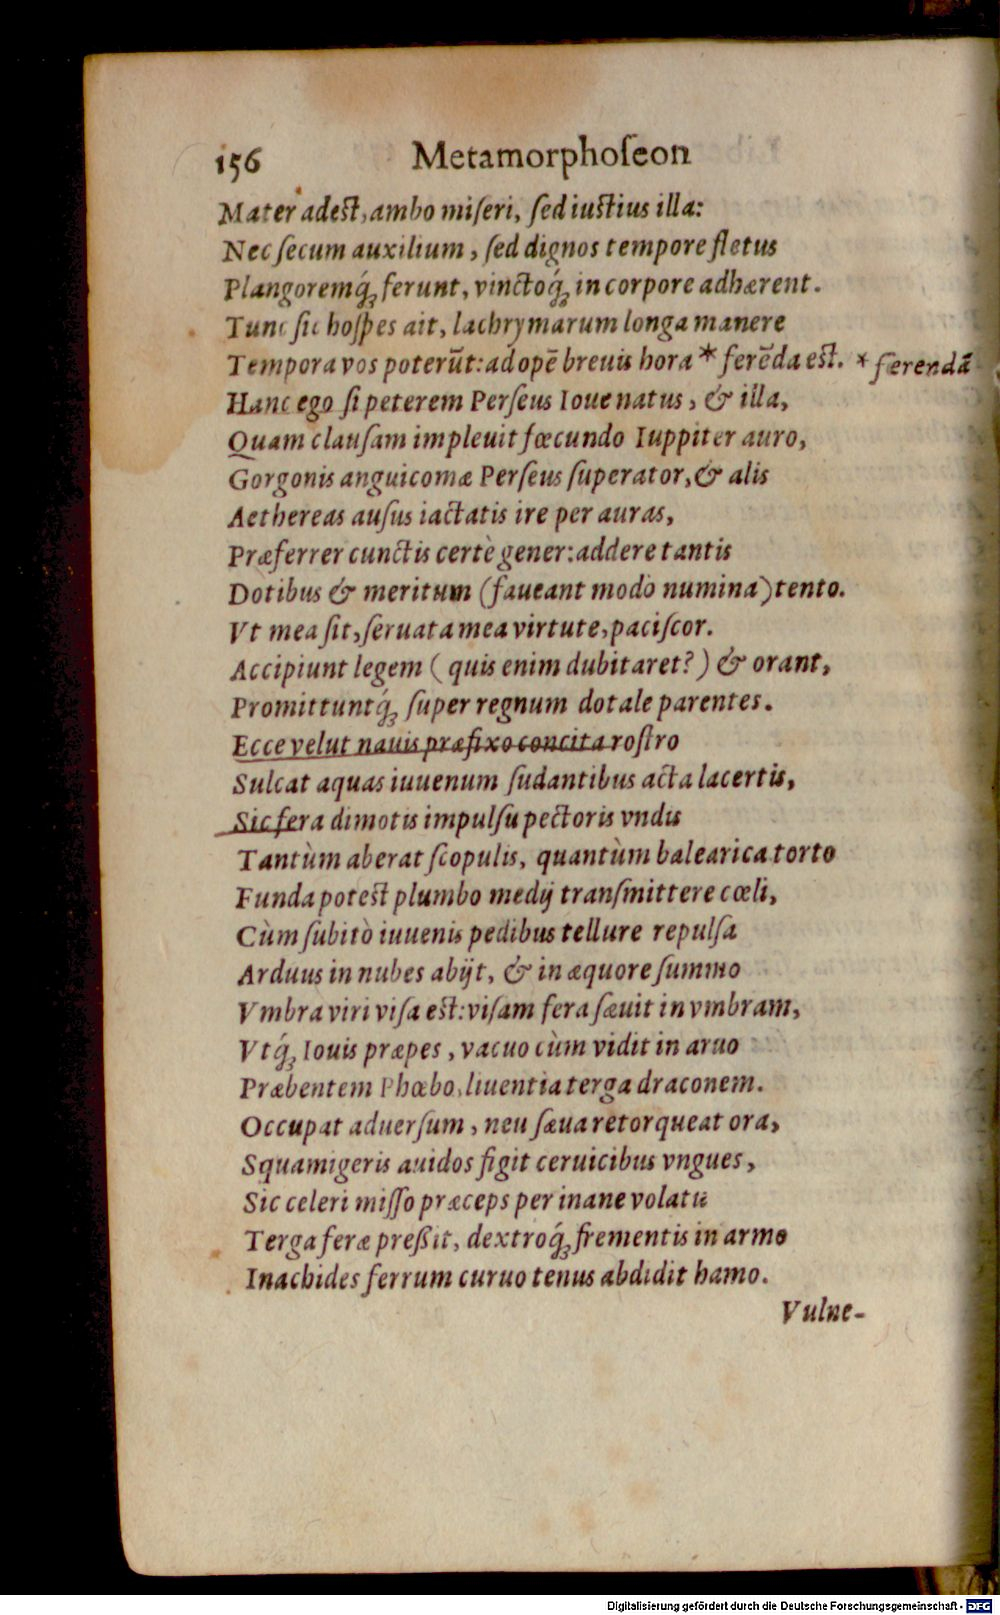 156 Metamorphoſeon
Mater adest, ambo miſeri, ſed iustius illa:
Nec ſecum auxilium, ſed dignos tempore fletus
Plangoremq́; ferunt, vinctoq́; in corpore adhærent.
Tunc ſic hoſpes ait, lachrymarum longa manere
Tempora vos poterũt: ad opẽ breuis hora * ferẽda est. * ferendã
Hanc ego ſi peterem Perſeus Ioue natus, & illa,
Quam clauſam impleuit fœcundo Iuppiter auro,
Gorgonis anguicomæ Perſeus ſuperator, & alis
Aethereas auſus iactatis ire per auras,
Præferrer cunctis certè gener: addere tantis
Dotibus & meritum (faueant modò numina) tento.
Vt mea ſit, ſeruata mea virtute, paciſcor.
Accipiunt legem ( quis enim dubitaret?) & orant,
Promittuntq́; ſuper regnum dotale parentes.
Ecce velut nauis præfixo concita roſtro
Sulcat aquas iuuenum ſudantibus acta lacertis,
Sic fera dimotis impulſu pectoris vndis
Tantùm aberat ſcopulis, quantùm balearica torto
Funda potest plumbo medij tranſmittere cœli,
Cùm ſubitò iuuenis pedibus tellure repulſa
Arduus in nubes abijt, & in æquore ſummo
Vmbra viri viſa est: viſam fera ſæuit in vmbram,
Vtq́; Iouis præpes, vacuo cùm vidit in aruo
Præbentem Phœbo, liuentia terga draconem.
Occupat aduerſum, neu ſæua retorqueat ora,
Squamigeris auidos figit ceruicibus vngues,
Sic celeri miſſo præceps per inane volatu
Terga feræ preßit, dextroq́; frementis in armo
Inachides ferrum curuo tenus abdidit hamo.
Vulne-
Digitalisierung gefördert durch die Deutsche Forschungsgemeinschaft - DFG